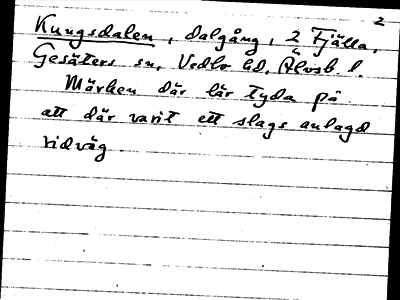 2
Kungsdalen, dalgång, 2 Fjälla,
Gesäters sn, Vedbo hd, Älvsb. l.
Märken där lär tyda på
att där varit ett slags anlagd
ridväg.